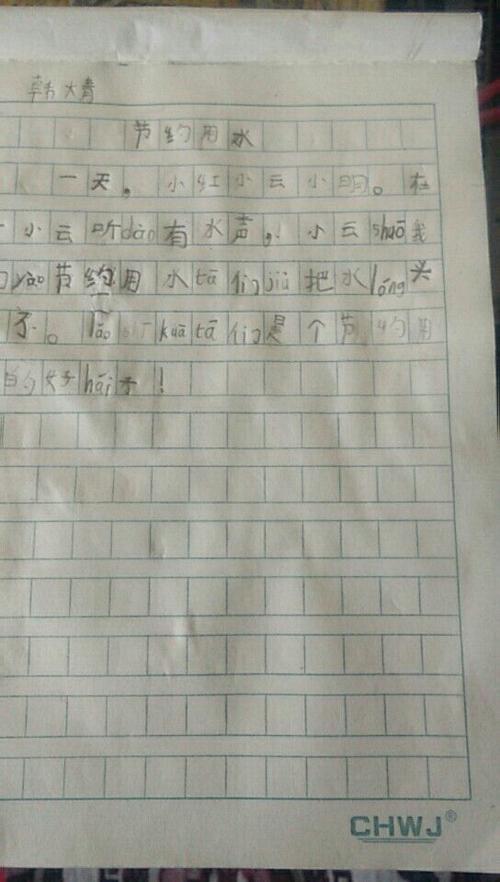 韩大青
节约用水
一天。小红小云小明。在
小云听dào有水声，小云shuō我
们yào节约用水tā们jiù把水lóng头
了。lǎo kuā tā们是个节约用
的好hái子！
CHWJ®